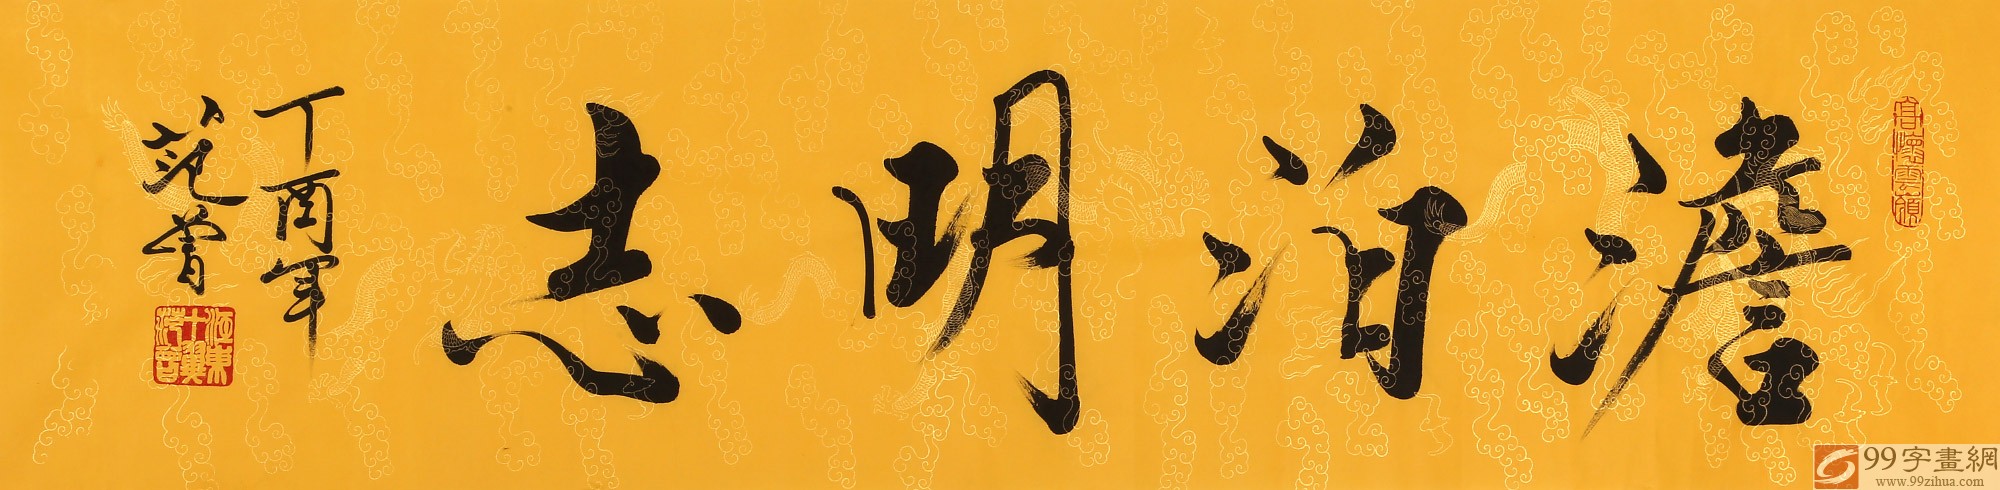 澹泊明志
丁酉年
范曾
江東
十翼
范曾
99字畫網
www.99zihua.com